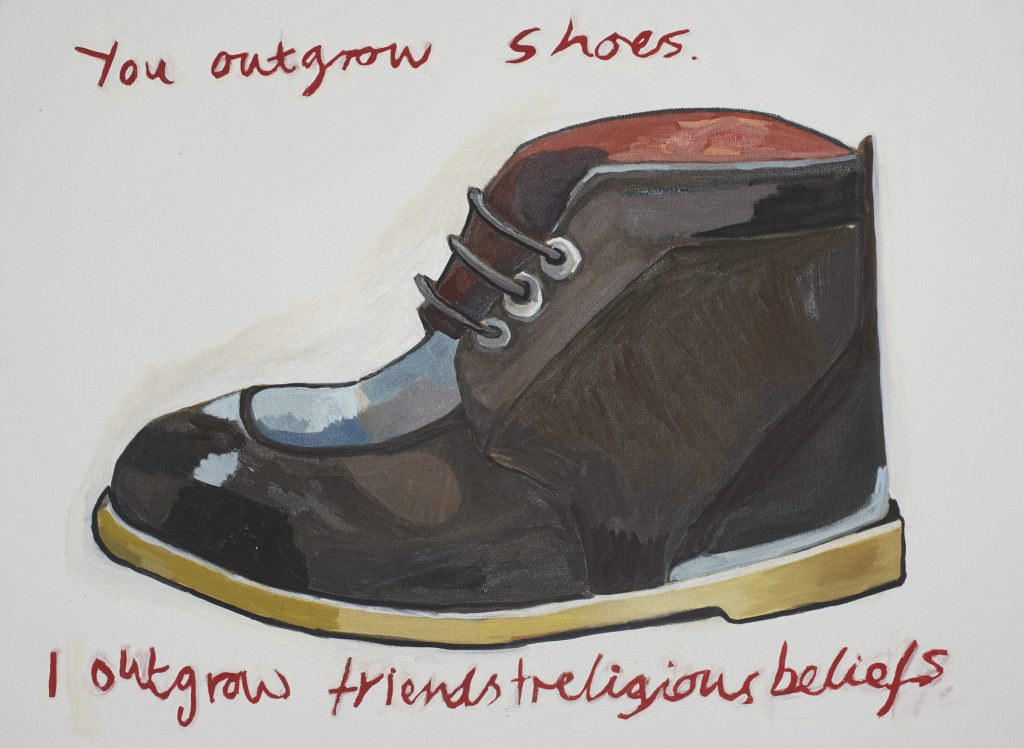 You outgrow shoes.
I outgrow friends + religious beliefs